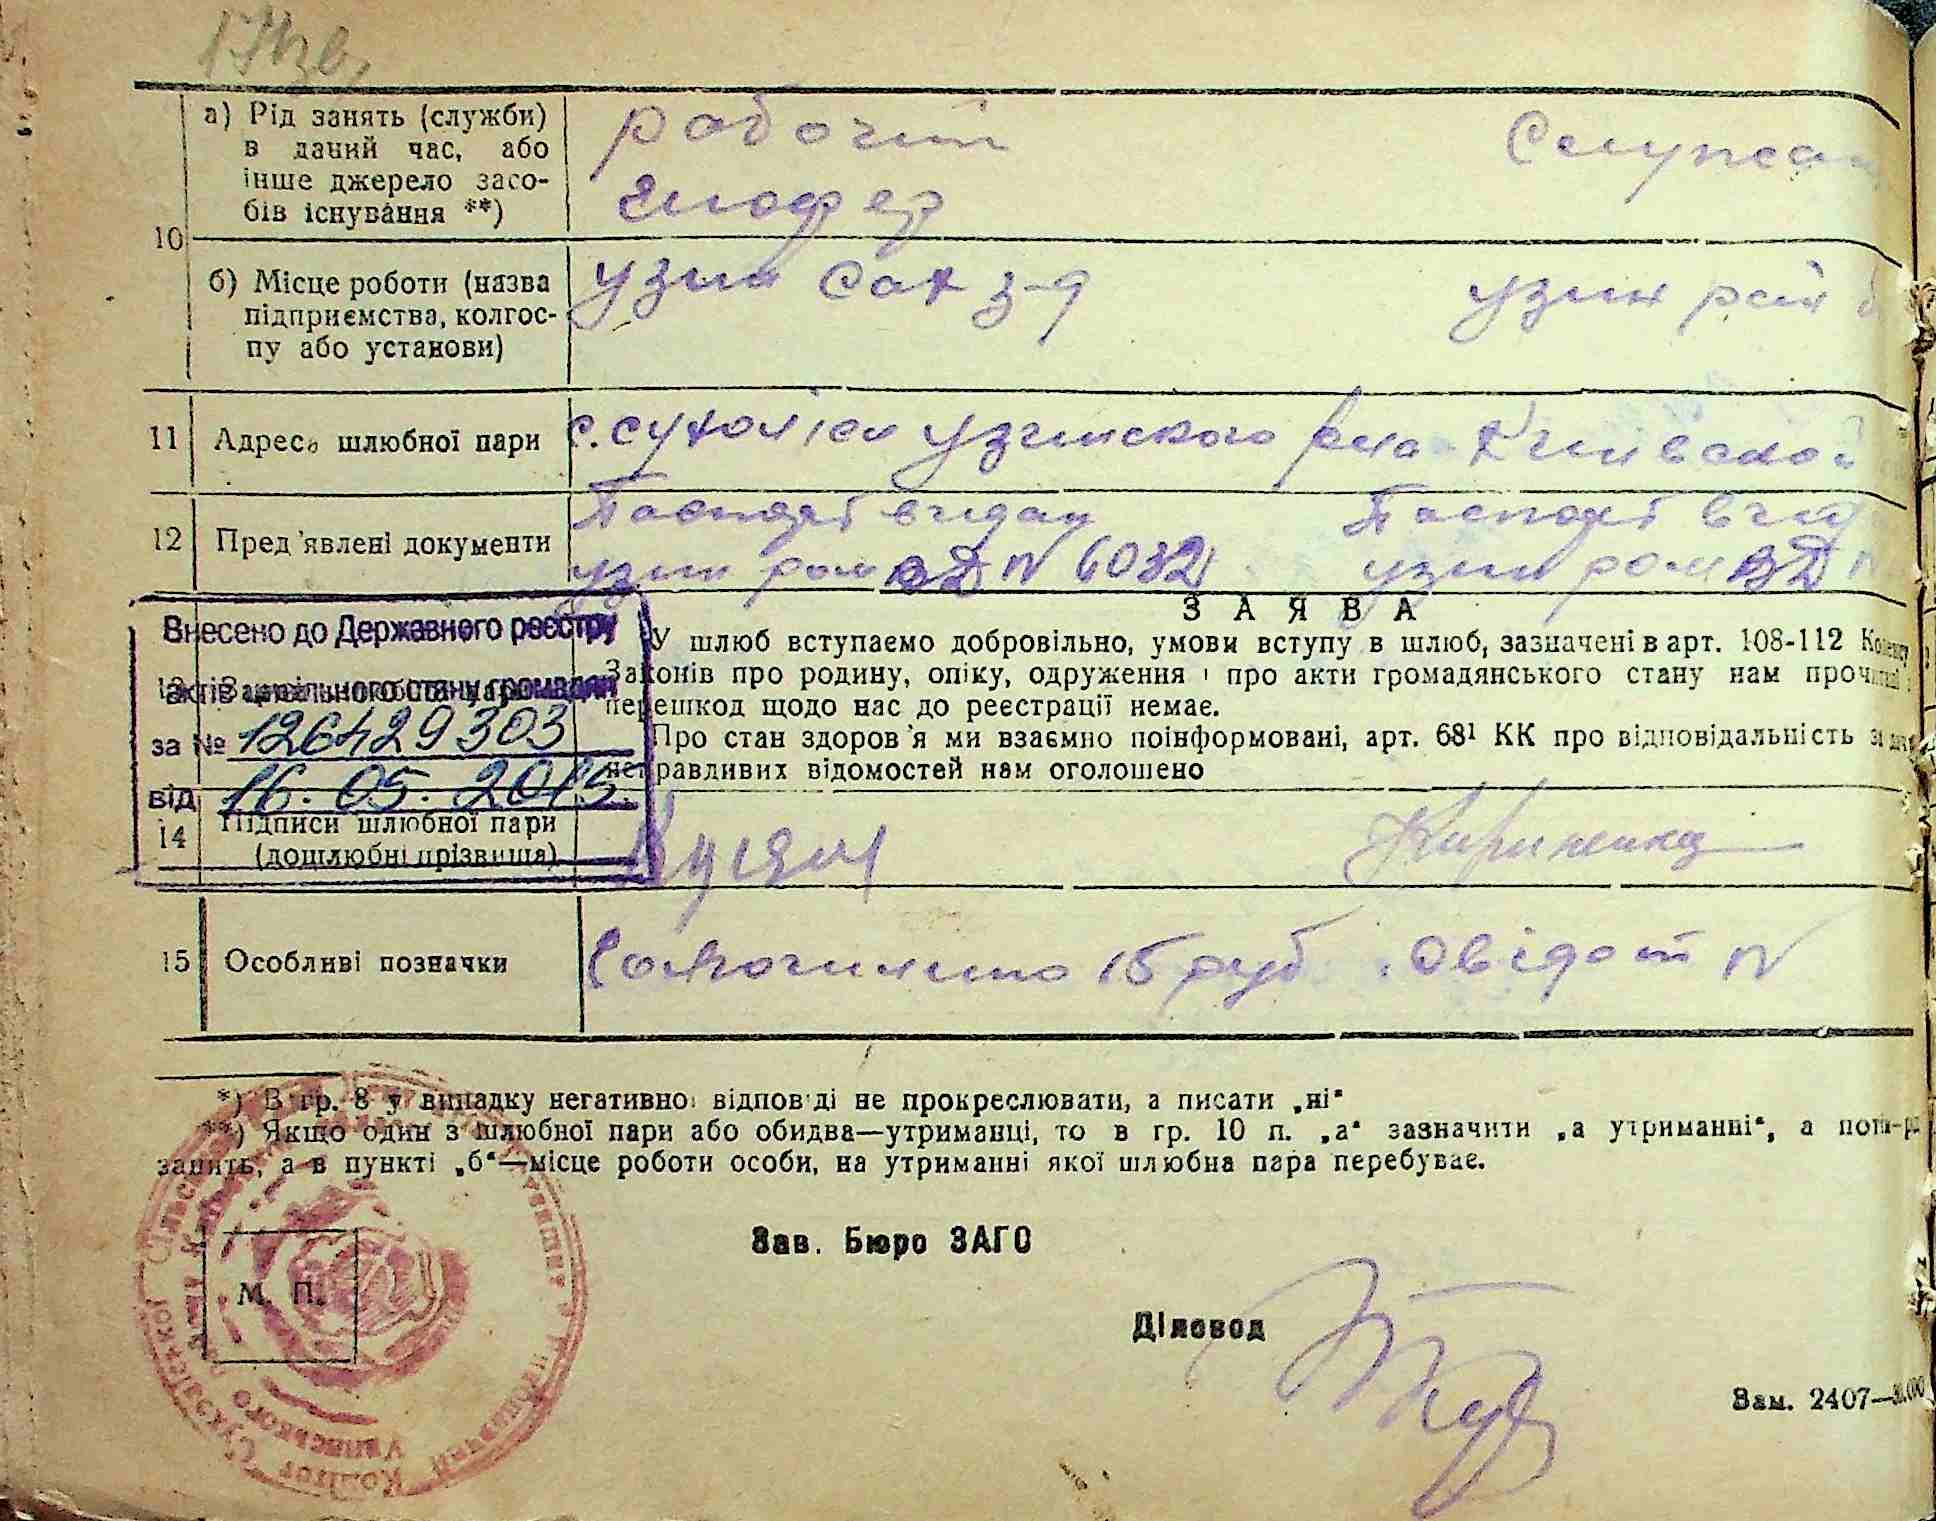 а) Рід занять (служби)
в даний час, або
інше джерело засо-
бів існування **)
рабочий
шофер
10
б) Місце роботи (назва
підприємства, колгос-
пу або установи)
узин сах з-д
узин рай
11 Адреса шлюбної пари
с. сухоліси узинского р-на Київской
12 Пред'явлені документи
Паспорт видан
узин ром ВД N 6032
Паспорт вид
узин ром ВД N
ЗАЯВА
У шлюб вступаємо добровільно, умови вступу в шлюб, зазначені в арт. 108-112 Кодексу
Законів про родину, опіку, одруження і про акти громадянського стану нам прочитані
перешкод щодо нас до реєстрації немає.
Про стан здоров'я ми взаємно поінформовані, арт. 68¹ КК про відповідальність за
неправдивих відомостей нам оголошено
Внесено до Державного реєстру
актів цивільного стану громадян
за № 126429303
від 16.05.2015.
14 Підписи шлюбної пари
(дошлюбні прізвища)
15 Особливі позначки
15 руб. Свідот N
*) В гр. 8 у випадку негативної відповіді не прокреслювати, а писати „ні“
**) Якщо один з шлюбної пари або обидва—утриманці, то в гр. 10 п. „а“ зазначити „а утриманні“, а потім рід
занять, а в пункті „б“—місце роботи особи, на утриманні якої шлюбна пара перебуває.
М. П.
Зав. Бюро ЗАГС
Діловод
Зам. 2407—